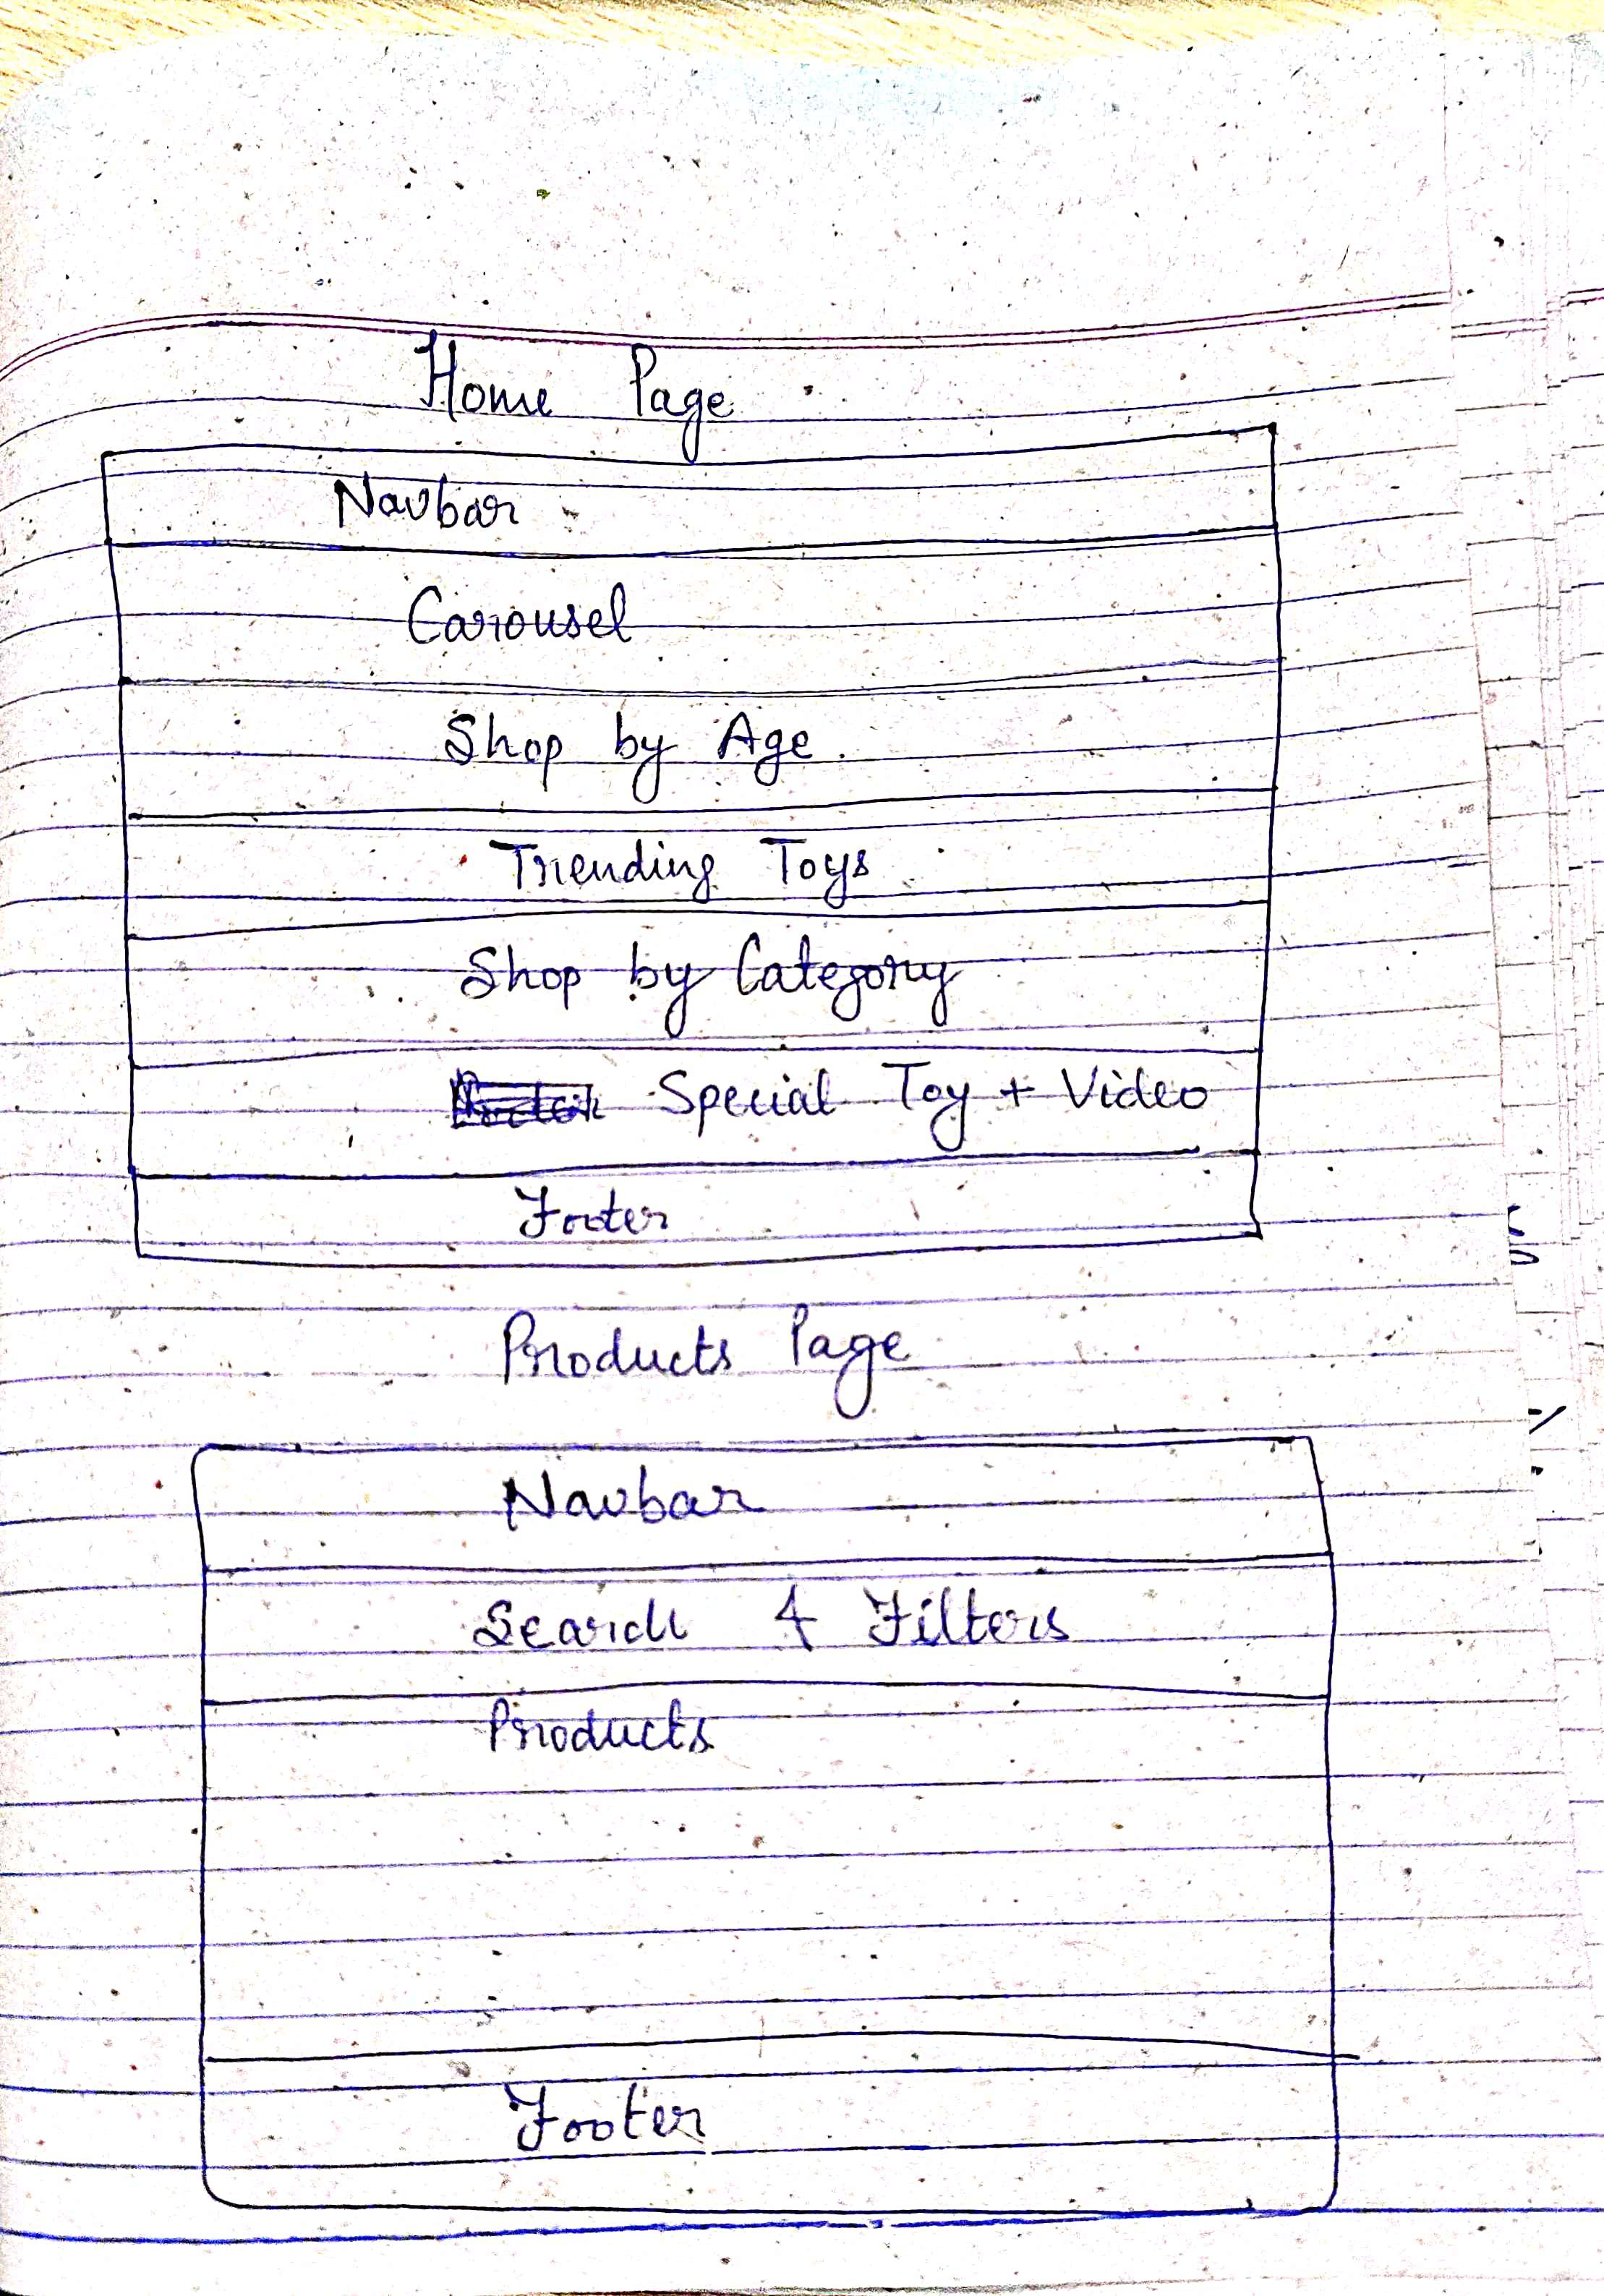 Home Page
Navbar
Carousel
Shop by Age
Trending Toys
Shop by Category
Special Toy + Video
Footer
Products Page
Navbar
Search & Filters
Products
Footer